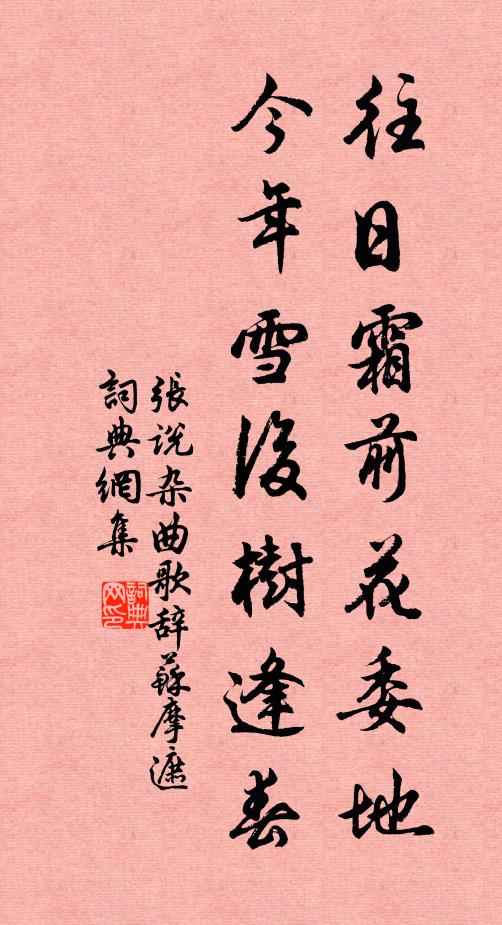 往日霜前花委地
今年雪後樹逢春
張说杂曲歌辞蘇摩遮
詞典網集
詞典網印